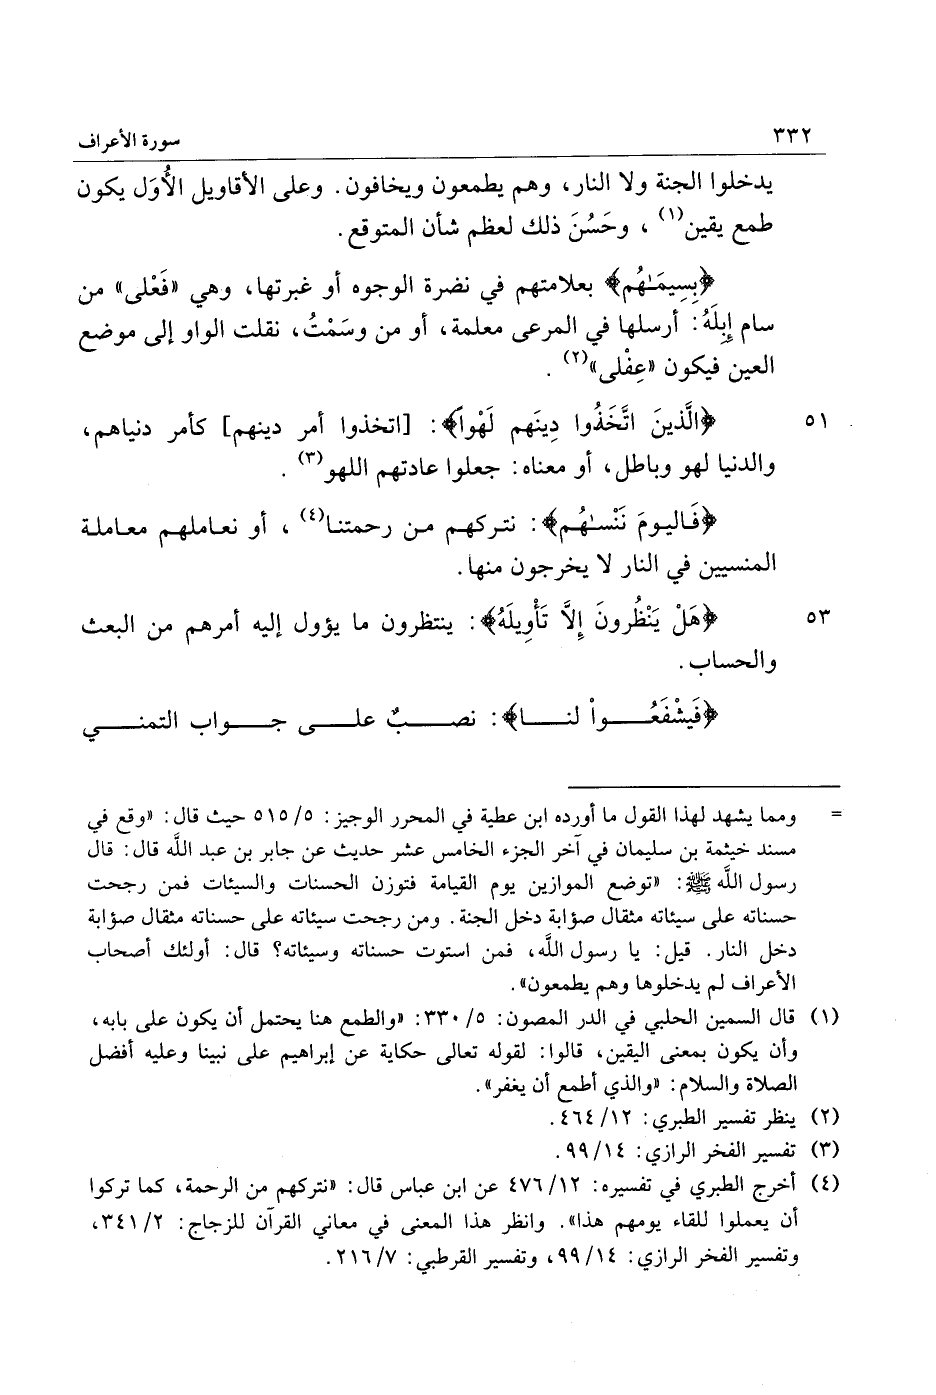 ٣٣٢ سورة الأعراف
يدخلوا الجنة ولا النار، وهم يطمعون ويخافون. وعلى الأقاويل الأُوَل يكون
طمع يقين(١)، وحَسُنَ ذلك لعظم شأن المتوقع.
﴿بِسِيمَـٰهُم﴾ بعلامتهم في نضرة الوجوه أو غبرتها، وهي «فَعْلى» من
سام إِبِلَهُ: أرسلها في المرعى معلمة، أو من وسَمْتُ، نقلت الواو إلى موضع
العين فيكون «عِفْلى»(٢).
٥١ ﴿الَّذينَ اتَّخَذُوا دِينَهم لَهْواً﴾: [اتخذوا أمر دينهم] كأمر دنياهم،
والدنيا لهو وباطل، أو معناه: جعلوا عادتهم اللهو(٣).
﴿فَاليومَ نَنْسـٰهُم﴾: نتركهم من رحمتنا(٤)، أو نعاملهم معاملة
المنسيين في النار لا يخرجون منها.
٥٣ ﴿هَلْ يَنْظُرونَ إِلاَّ تَأْوِيلَهُ﴾: ينتظرون ما يؤول إليه أمرهم من البعث
والحساب.
﴿فَيَشْفَعُواْ لنا﴾: نصبٌ على جواب التمني
= ومما يشهد لهذا القول ما أورده ابن عطية في المحرر الوجيز: ٥/ ٥١٥ حيث قال: «وقع في
مسند خيثمة بن سليمان في آخر الجزء الخامس عشر حديث عن جابر بن عبد الله قال: قال
رسول الله ﷺ: «توضع الموازين يوم القيامة فتوزن الحسنات والسيئات فمن رجحت
حسناته على سيئاته مثقال صؤابة دخل الجنة. ومن رجحت سيئاته على حسناته مثقال صؤابة
دخل النار. قيل: يا رسول الله، فمن استوت حسناته وسيئاته؟ قال: أولئك أصحاب
الأعراف لم يدخلوها وهم يطمعون».
(١) قال السمين الحلبي في الدر المصون: ٥/ ٣٣٠: «والطمع هنا يحتمل أن يكون على بابه،
وأن يكون بمعنى اليقين، قالوا: لقوله تعالى حكاية عن إبراهيم على نبينا وعليه أفضل
الصلاة والسلام: «والذي أطمع أن يغفر».
(٢) ينظر تفسير الطبري: ١٢/ ٤٦٤.
(٣) تفسير الفخر الرازي: ١٤/ ٩٩.
(٤) أخرج الطبري في تفسيره: ١٢/ ٤٧٦ عن ابن عباس قال: «نتركهم من الرحمة، كما تركوا
أن يعملوا للقاء يومهم هذا». وانظر هذا المعنى في معاني القرآن للزجاج: ٢/ ٣٤١،
وتفسير الفخر الرازي: ١٤/ ٩٩، وتفسير القرطبي: ٧/ ٢١٦.